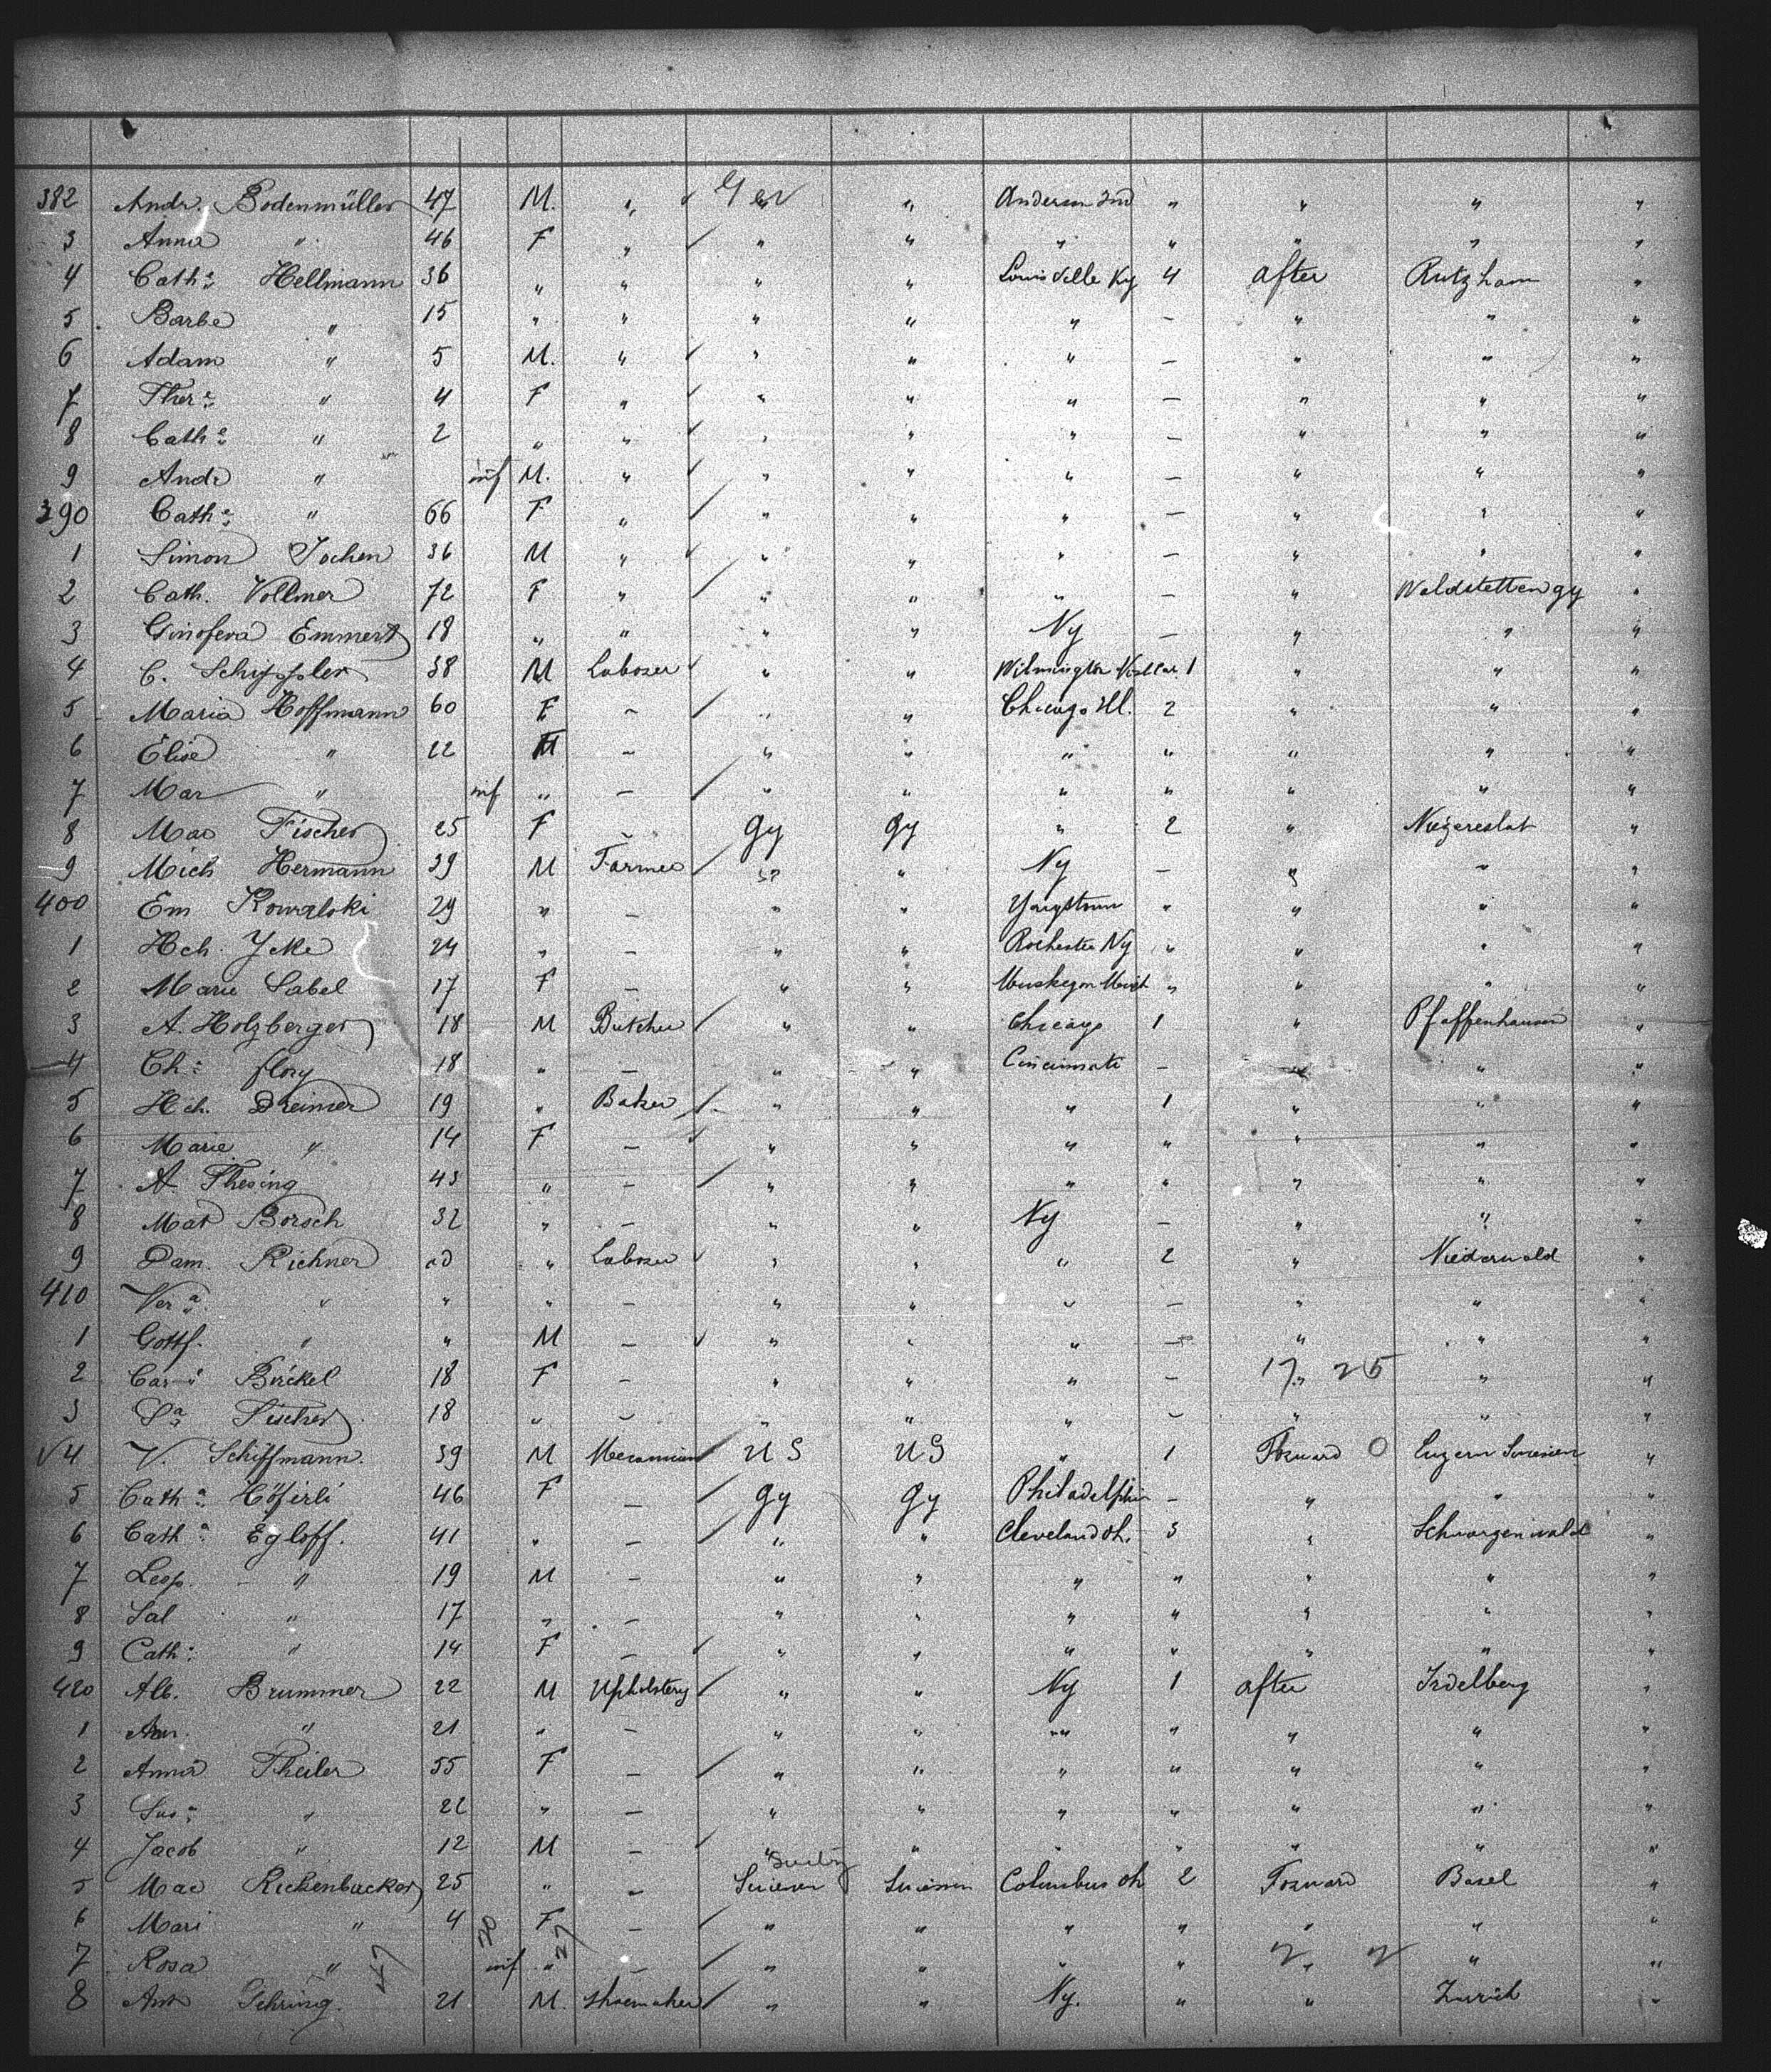 382 Andr. Bodenmüller 47 M. " Ger " Anderson Ind " " " "
3 Anna " 46 F " " " " " " " "
4 Cath a Hellmann 36 " " " " Louisville Ky 4 after Rutzham "
5 Barbe " 15 " " " " " — " " "
6 Adam " 5 M. " " " " — " " "
7 Ther a " 4 F " " " " — " " "
8 Cath a " 2 " " " " " — " " "
9 Andr " inf M. " " " " — " " "
390 Cath a " 66 F " " " " — " " "
1 Simon Jochen 36 M " " " " — " " "
2 Cath. Vollmer 72 F " " " " — " Waldstetten gy "
3 Ginofeva Emmert 18 " " " " Ny — " " "
4 C. Schippler 38 M Laborer " " Wilmington 1 " " "
5 Maria Hoffmann 60 F — " " Chicago Ill. 2 " " "
6 Elise " 22 M — " " " " " " "
7 Mar " inf " — " " " " " " "
8 Mac Fischer 25 F — gy gy " 2 " "
9 Mich Hermann 29 M Farmer " " Ny — " " "
400 Em Kowalski 29 " — " " " " " "
1 Hch. 24 " — " " Rochester Ny " " " "
2 Marie Sabel 17 F — " " Muskegon Mich " " " "
3 A. Holzberger 18 M Butcher " " Chicago 1 " Pfaffenhausen "
4 Ch: flory 18 " — " " Cincinnati — " " "
5 Hch. Dreimer 19 " Baker " " " 1 " " "
6 Marie " 14 F — " " " " " " "
7 A. Thesing 43 " — " " " " " " "
8 Mat Borsch 32 " — " " Ny — " " "
9 Dam. Richner " Laborer " " " 2 " Niederwald "
410 Ver a " " " — " " " — " " "
1 Gottf. " " M — " " " — " " "
2 Car a Bickel 18 F — " " " — " 17 25 " "
3 Fischer 18 " — " " " — " " "
4 V. Schiffmann. 39 M US US " 1 Forward O Luzern "
5 Cath a Höfirli 46 F — gy gy Philadelphia — " " "
6 Cath a Egloff. 41 " — " " Cleveland Oh. 3 " Schwarzenwald "
7 Leop. " 19 M — " " " " " " "
8 Sal " 17 " — " " " " " " "
9 Cath: " 14 F — " " " " " " "
420 Alb. Brummer 22 M Upholstery " " Ny 1 after Irdelberg "
1 Ann. " 21 " — " " " " " " "
2 Anna Theiler 55 F — " " " " " " "
3 Sus a " 22 " — " " " " " " "
4 Jacob " 12 M — " " " " " " "
5 Mac Rickenbacker 25 " — Columbus Oh 2 Forward Basel "
6 Mari " 4 F — " " " " " " "
7 Rosa " inf " — " " " " " " "
8 Ant Gehring. 21 M. Shoemaker " " Ny. " " Zurich "